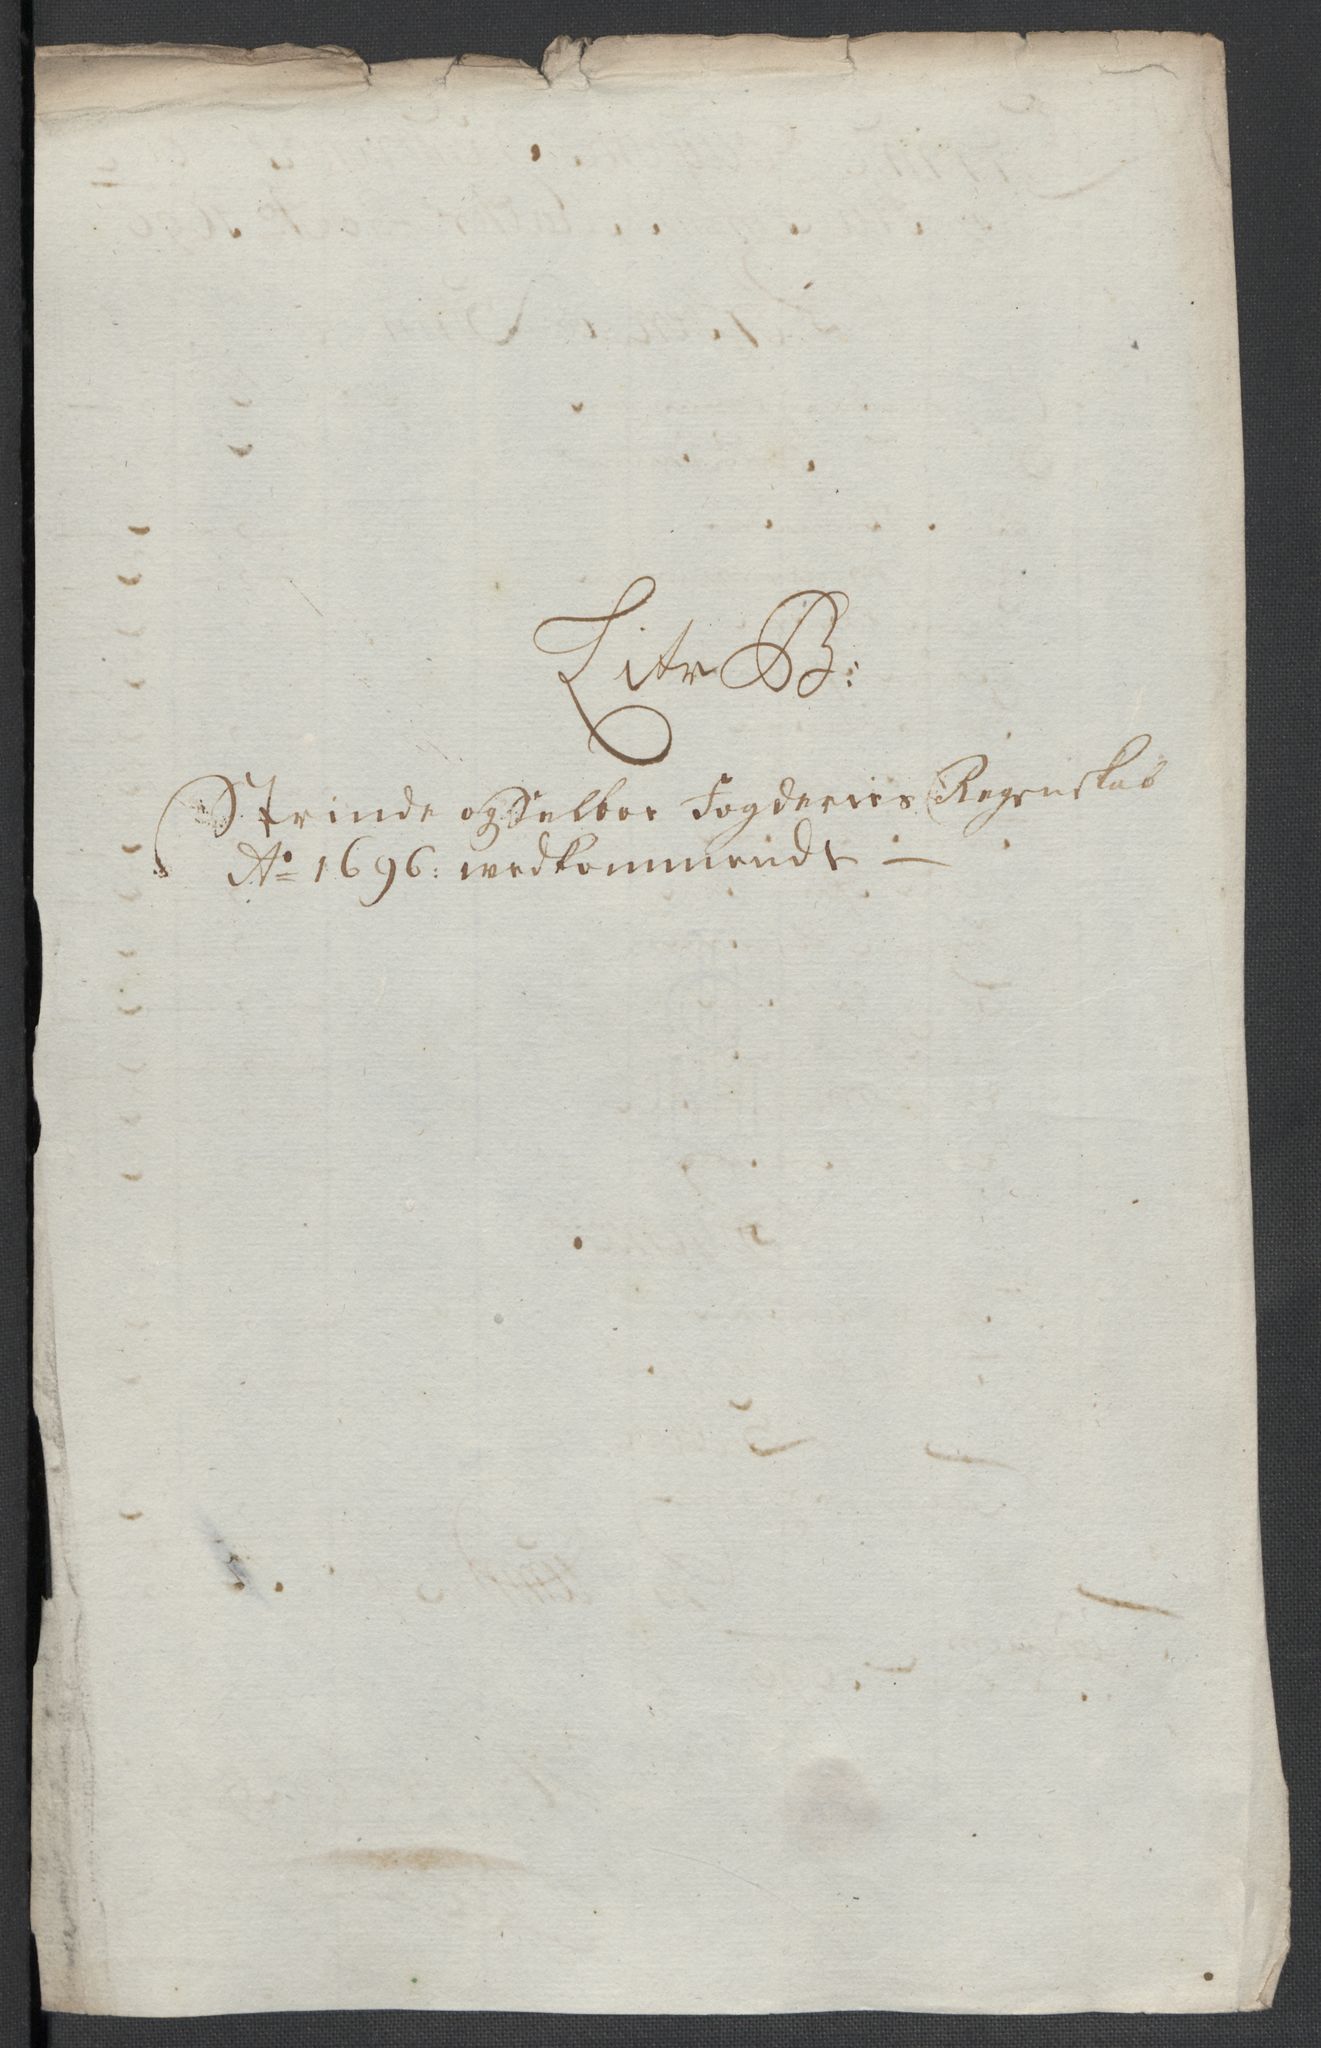 Litr B:
Strinde og Selboe Fogderies Regenskab
Ao 1696: wedkommende —